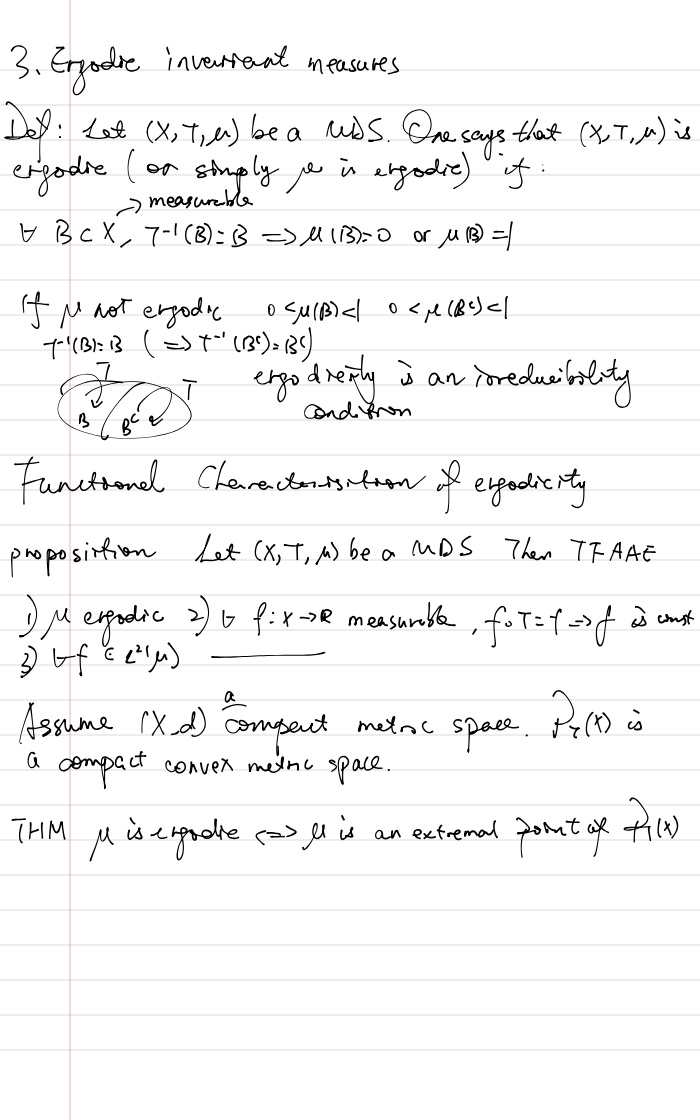 3. Ergodic invariant measures
Def: Let (X, T, μ) be a MDS. One says that (X, T, μ) is
ergodic (or simply μ is ergodic) if:
→ measurable
∀ B ⊂ X, T⁻¹(B) = B ⟹ μ(B) = 0 or μ(B) = 1
If μ not ergodic 0 < μ(B) < 1 0 < μ(Bᶜ) < 1
T⁻¹(B) = B (⟹ T⁻¹(Bᶜ) = Bᶜ)
T T
B Bᶜ
ergodicity is an irreducibility
condition
Functional Characterisation of ergodicity
proposition Let (X, T, μ) be a MDS Then TFAAE
1) μ ergodic 2) ∀ f: X → ℝ measurable, f∘T = f ⟹ f is const
3) ∀ f ∈ L²(μ) ————
Assume (X, d) a compact metric space. P_T(X) is
a compact convex metric space.
THM μ is ergodic ⟺ μ is an extremal point of P_T(X)